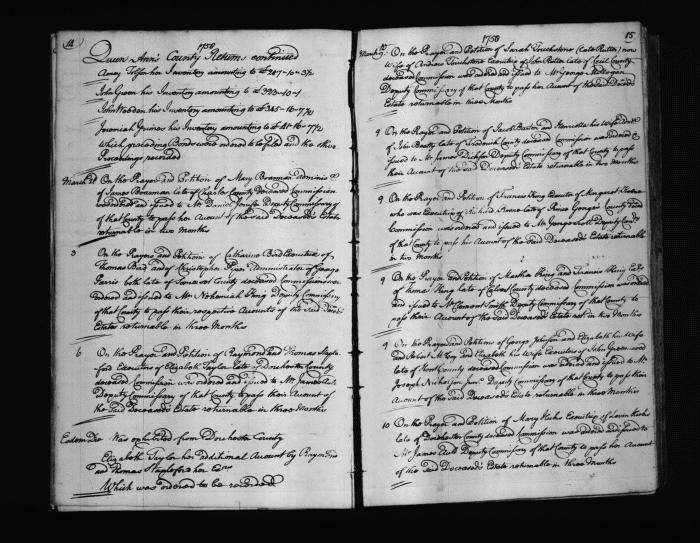 14
1750
Queen Ann's County Returns continued
Amey Tolson her Inventory amounting to £207-10-3½
John Green his Inventory amounting to £393-10-1
John Wooden his Inventory amounting to £345-16-7½
Jeremiah Grimes his Inventory amounting to £41-16-7½
Which preceeding Bonds were ordered to be filed and the other
Proceedings recorded
March 2d On the Prayer and Petition of Mary Boarman Adminis
of James Boarman late of Charles County deceased Commission
was ordered and issued to Mr Daniel Deputy Commissary of
that County to pass her Account of the said Deceased's Estate
returnable in two Months
3 On the Prayer and Petition of Catharine Bird Executrix of
Thomas Bird and of Christopher Administrator of George
Parris both late of Somerset County deceased Commissions were
ordered and issued to Mr Nehemiah King Deputy Commissary
of that County to pass their respective Accounts of the said Deced
Estates returnable in three Months
6 On the Prayer and Petition of Raymond and Thomas Staple
ford Executors of Elizabeth Taylor late of Dorchester County
deceased Commission was ordered and issued to Mr James
Deputy Commissary of that County to pass their Account of
the said Deceased's Estate returnable in three Months
Eodem Die Was exhibited from Dorchester County
Elizabeth Taylor her additional Account by Raymond
and Thomas Stapleford her Exrs
Which was ordered to be recorded
1750
15
March On the Prayer and Petition of Sarah Touchstone (late Rutter) now
Wife of Andrew Touchstone Executrix of John Rutter late of Cecil County
deceased Commission was ordered and issued to Mr George Milligan
Deputy Commissary of that County to pass her Account of the said Deceds
Estate returnable in three Months
9 On the Prayer and Petition of Jacob and Henrietta his Wife
of John Beatty late of Frederick County deceased Commission was ordered &
issued to Mr James Dickson Deputy Commissary of that County to pass
their Account of the said Deceased's Estate returnable in three Months
9 On the Prayer and Petition of Francis King Executor of Margaret
who was Executrix of Richard late of Prince George's County Deced
Commission was ordered and issued to Mr George Scott Deputy
of that County to pass his Account of the said Deceased's Estate returnable
in two Months
9 On the Prayer and Petition of Martha King and Francis King
of Thomas King late of Calvert County deceased Commission was ordered
and issued to Mr Clement Smith Deputy Commissary of that County to
pass their Account of the said Deceased's Estate in two Months
9 On the Prayer and Petitions of George Johnson and Elizabeth his Wife
and Robert and Elizabeth his Wife Executors of John
late of Kent County deceased Commission was ordered and issued to Mr
Joseph Nicholson Junr Deputy Commissary of that County to pass their
Account of the said Deceased's Estate returnable in three Months
10 On the Prayer and Petition of Mary Executrix of
late of Dorchester County deceased Commission was ordered and issued to
Mr James Deputy Commissary of that County to pass her Account
of the said Deceased's Estate returnable in three Months